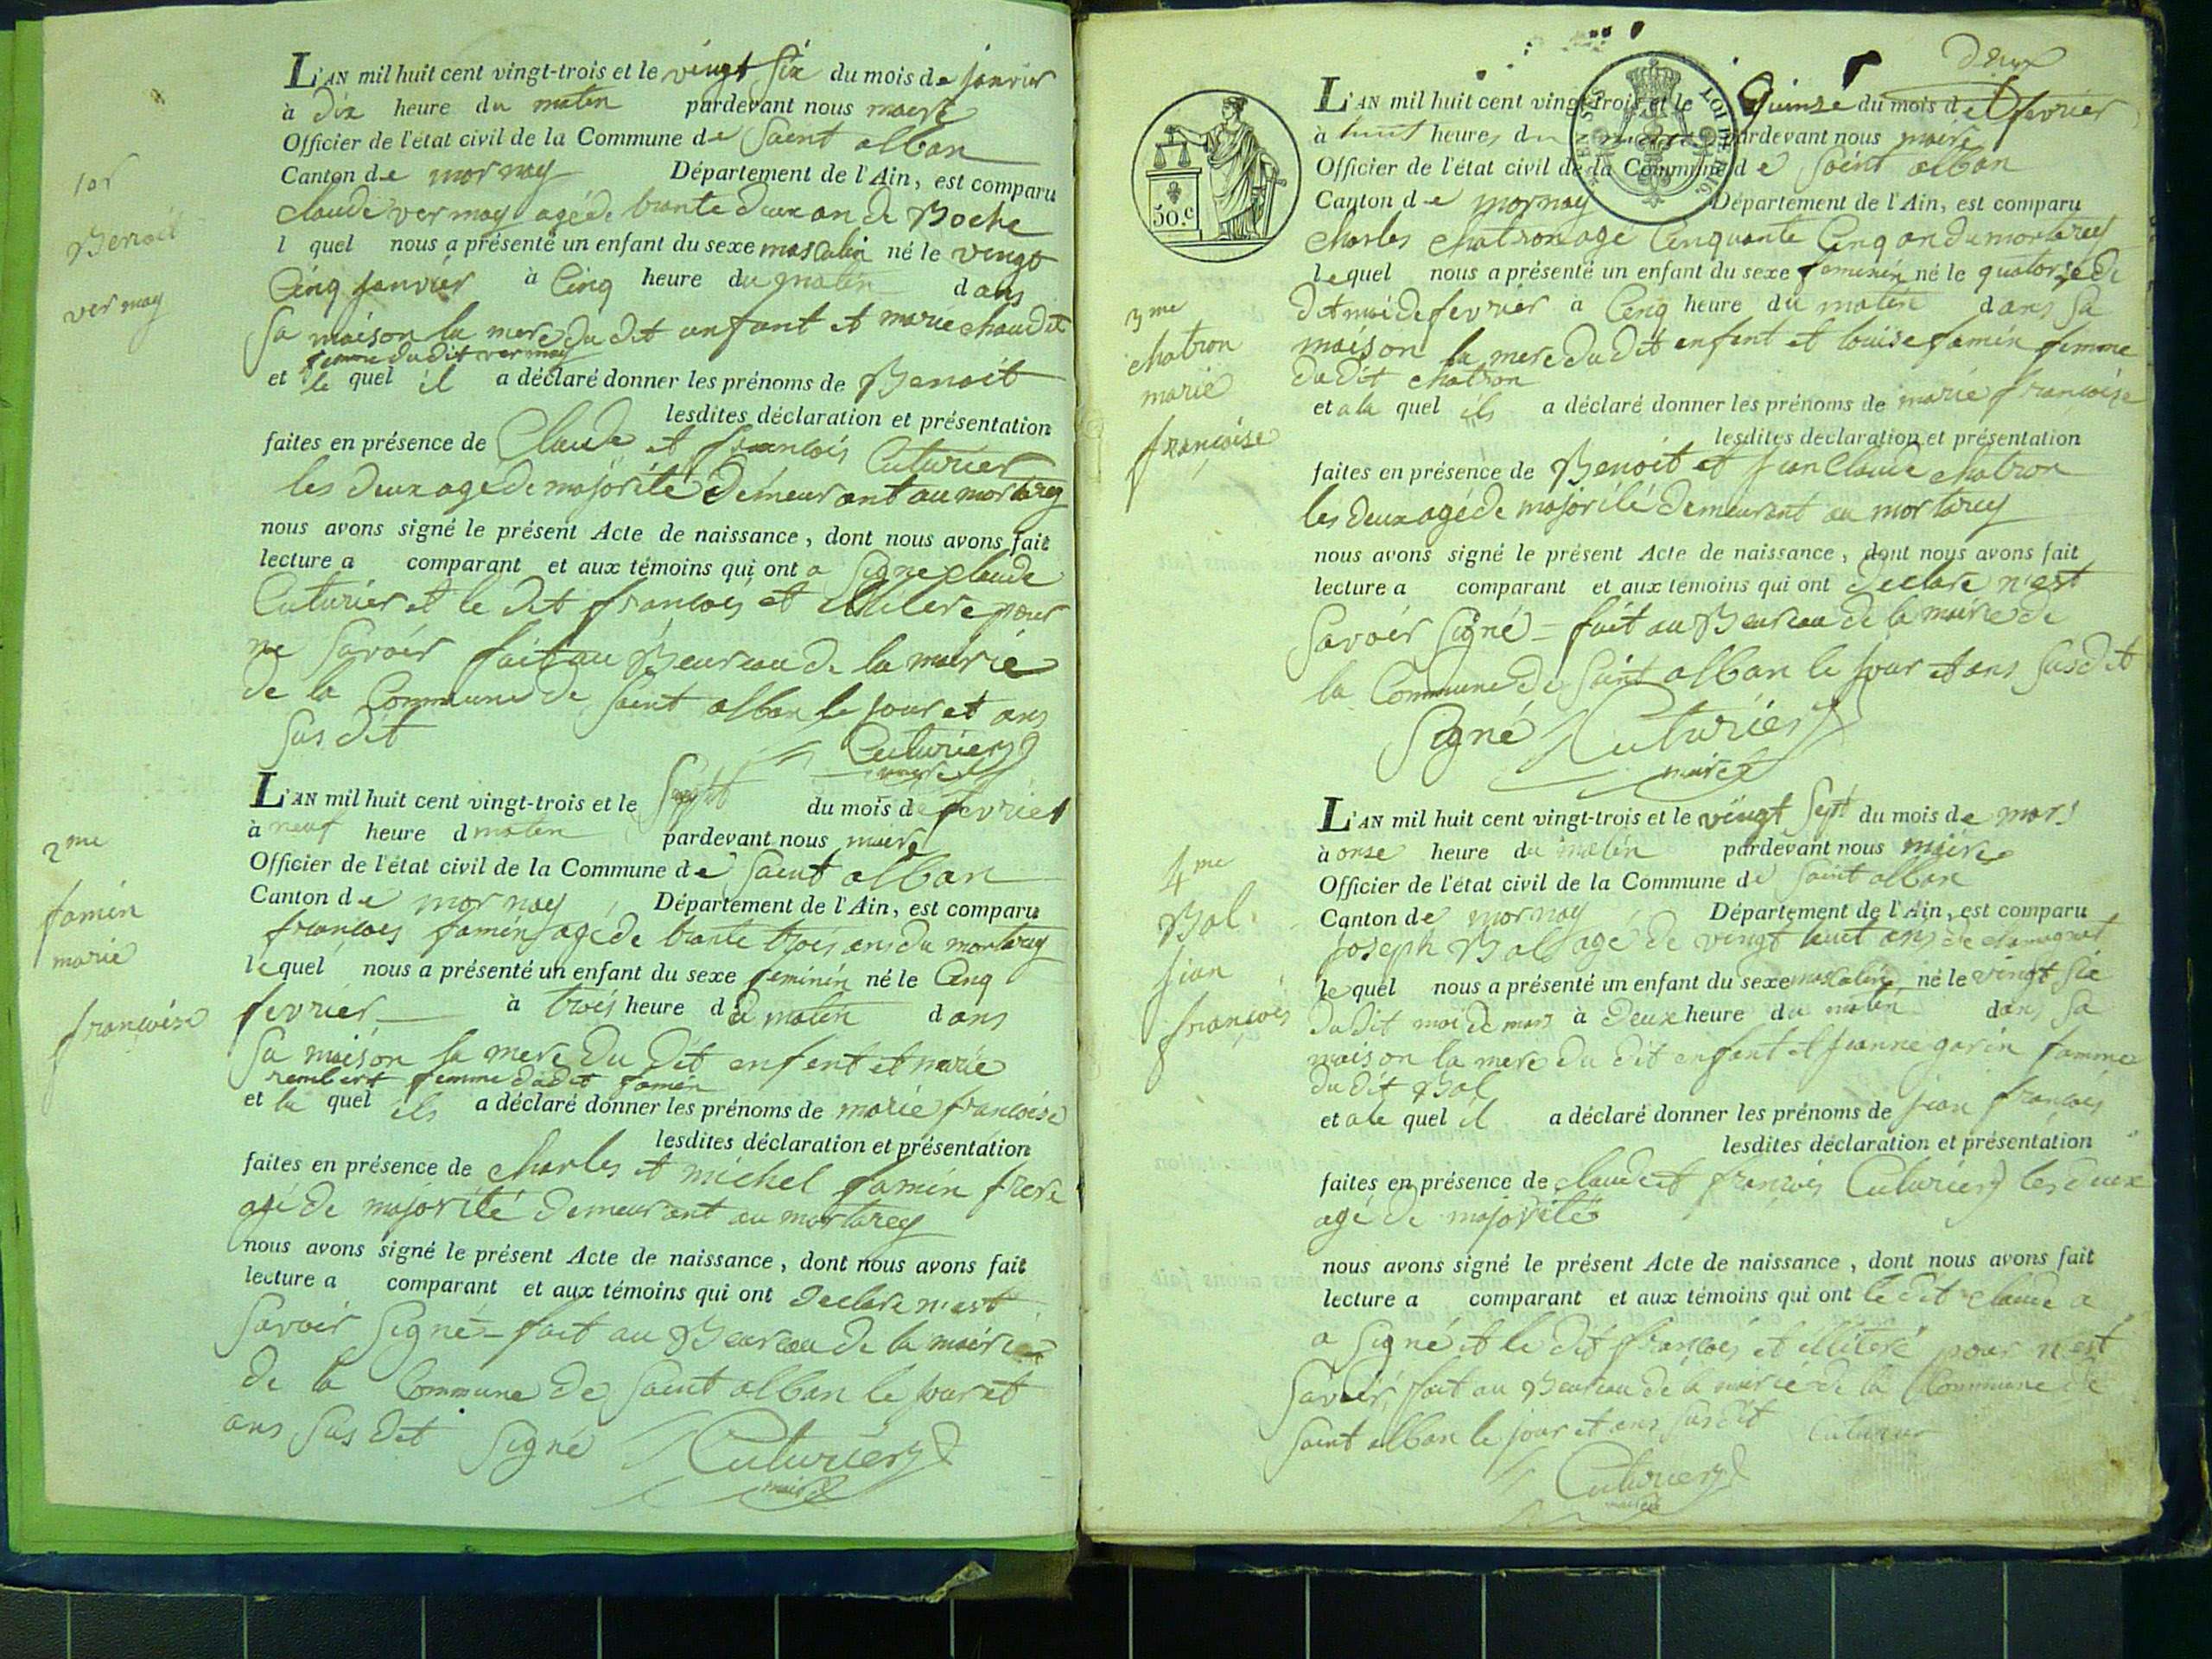 1er
Benoit
vermay
L'AN mil huit cent vingt-trois et le vingt six du mois de janvier
à dix heure du matin pardevant nous maire
Officier de l'état civil de la Commune de Saint alban
Canton de mornay Département de l'Ain, est comparu
Claude vermay agé de trante deux an de Boche
l quel nous a présenté un enfant du sexe masculin né le vingt
Cinq janvier à Cinq heure du matin dans
Sa maison la mere du dit enfant et marie chaudet
femme du dit vermay
et le quel il a déclaré donner les prénoms de Benoit
lesdites déclaration et présentation
faites en présence de Claude et francois Cuturier
les deux agé de majorité demeurant au mortarey
nous avons signé le présent Acte de naissance, dont nous avons fait
lecture a comparant et aux témoins qui ont a Signe claude
Cuturier et le dit francois et illitere pour
ne Savoir fait au Beureau de la mairie
de la Commune de Saint alban le jour et ans
Sus dit
Cuturier
maire
2me
famin
marie
francoise
L'AN mil huit cent vingt-trois et le Sept du mois de fevrier
à neuf heure d matin pardevant nous maire
Officier de l'état civil de la Commune de Saint alban
Canton de mornay, Département de l'Ain, est comparu
francois famin agé de trante trois ans du mortarey
lequel nous a présenté un enfant du sexe feminin né le Cinq
fevrier à trois heure du matin dans
Sa maison la mere du dit enfent et marie
rembert femme dudit famin
et la quel ils a déclaré donner les prénoms de marie francoise
lesdites déclaration et présentation
faites en présence de Charles et michel famin frere
agé de majorité demeurant au mortarey
nous avons signé le présent Acte de naissance, dont nous avons fait
lecture a comparant et aux témoins qui ont declare n'est
Savoir Signé fait au Beureau de la mairie
de la Commune de Saint alban le jour et
ans Sus dit Signé Cuturier
maire
deux
50.c
LOI DE 1816
3me
chatron
marie
françoise
L'AN mil huit cent vingt-trois et le Quinse du mois de fevrier
à huit heures du pardevant nous maire
Officier de l'état civil de la Commune de Saint alban
Canton de mornay Département de l'Ain, est comparu
Charles chatron agé Cinquante Cinq an du mortarey
lequel nous a présenté un enfant du sexe feminin né le quatorse de
dit moi de fevrier a Cinq heure du matin dans Sa
maison la mere du dit enfent et louise famin femme
du dit chatron
et a la quel ils a déclaré donner les prénoms de marie francoise
lesdites déclaration et présentation
faites en présence de Benoit et jean Claude chatron
les deux agé de majorité demeurant au mortarey
nous avons signé le présent Acte de naissance, dont nous avons fait
lecture a comparant et aux témoins qui ont declare n'est
Savoir Signé = fait au Beureau de la mairie de
la Commune de Saint alban le jour et ans Susdit
Signé Cuturier
maire
4me
Bal
jean
francois
L'AN mil huit cent vingt-trois et le vingt Sept du mois de mars
à onse heure du matin pardevant nous maire
Officier de l'état civil de la Commune de Saint alban
Canton de mornay Département de l'Ain, est comparu
joseph Bal agé de vingt huit ans de
lequel nous a présenté un enfant du sexe masculin né le vingt six
du dit moi de mars à deux heure du matin dans Sa
maison la mere du dit enfant et jeanne garin famme
du dit Bal
et a le quel il a déclaré donner les prénoms de jean francois
lesdites déclaration et présentation
faites en présence de claude et francois Cuturier les deux
agé de majorité
nous avons signé le présent Acte de naissance, dont nous avons fait
lecture a comparant et aux témoins qui ont le dit claude a
a Signé et le dit francois et illiteré pour n'est
Savoir, fait au Beureau de la mairie de la Commune de
Saint alban le jour et ans Sus dit Cuturier
Cuturier
maire